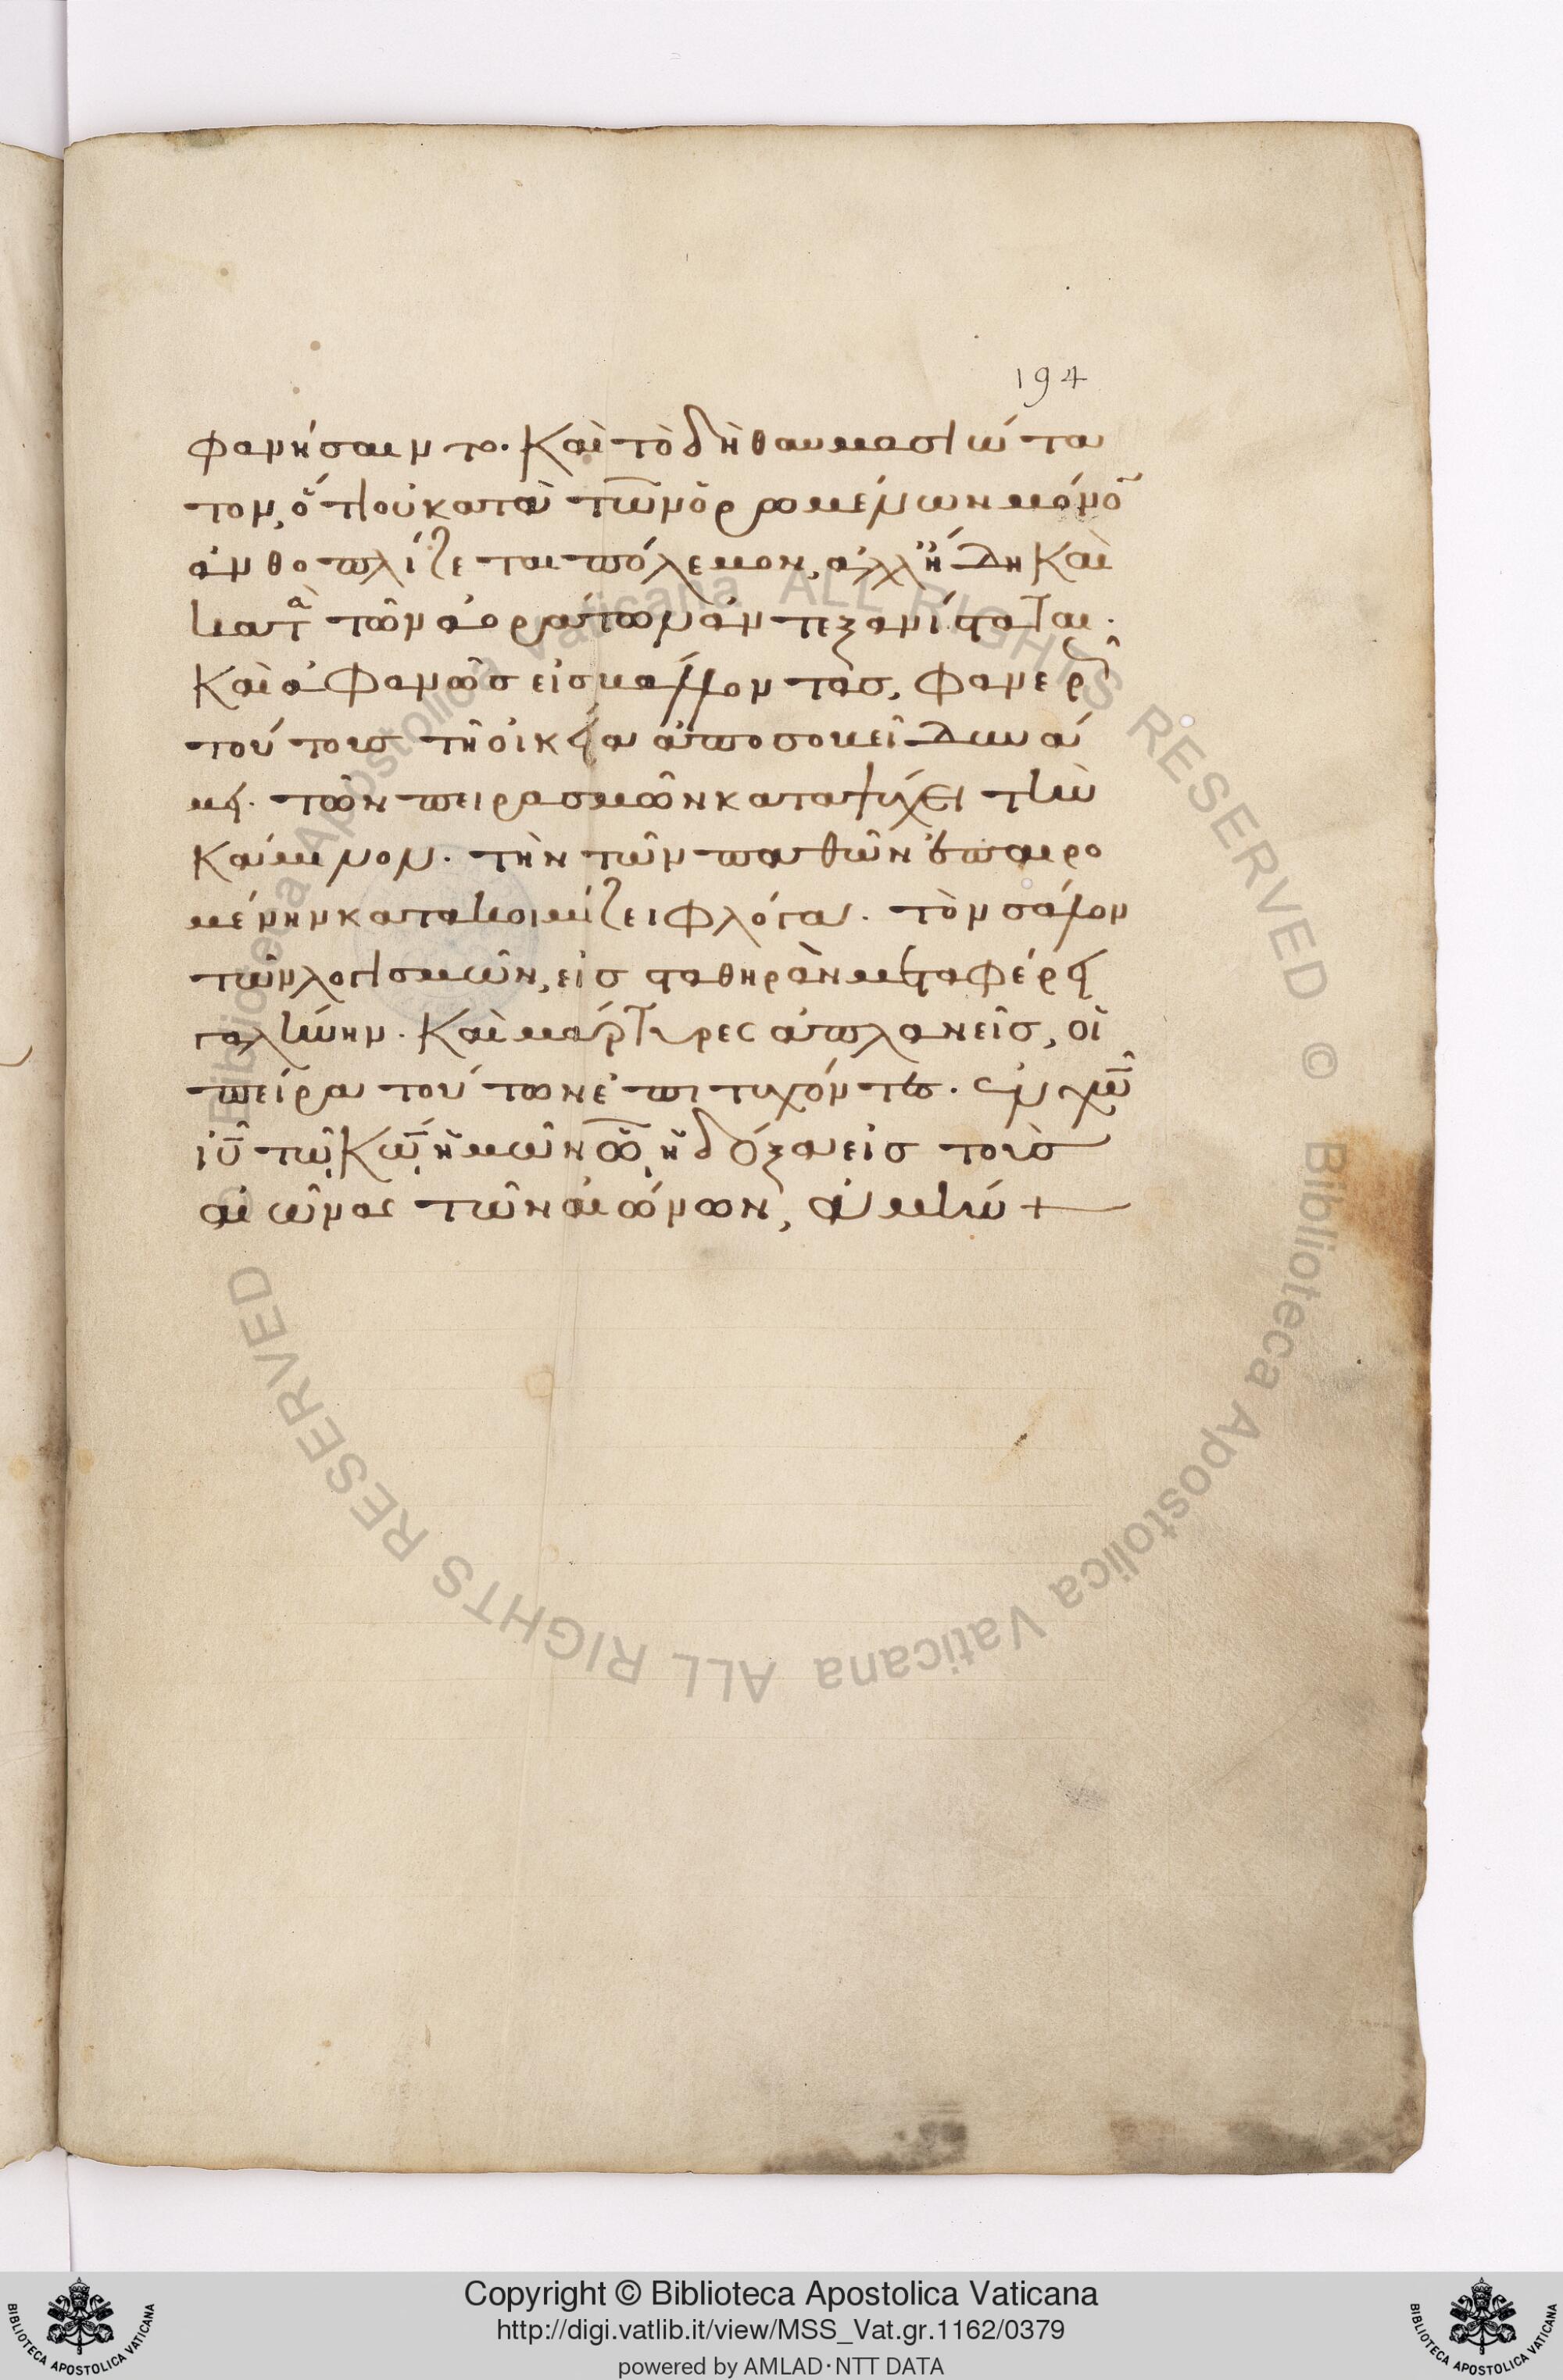 194
φανήσαιντο. Καὶ τὸ δὴ θαυμαστώτα
τον, ὅτι οὐ κατὰ τῶν ὁρωμένων μόνο
ἀνθοπλίζεται πόλεμον, ἀλλ' ἤδη Καὶ
κατὰ τῶν ἀοράτων ἀντεξανίσταται.
Καὶ ἀφανῶς εἰσβάλλοντας, φανερῶ
τούτους τῆ οἰκεία ἀποσοβεῖ δυνά
μει. τῶν πειρασμῶν καταψύχει τὴν
Κάμινον. τὴν τῶν παθῶν ἐπαιρο
μένην κατακοιμίζει φλόγα. τὸν σάλον
τῶν λογισμῶν, εἰς σταθηρὰν μεταφέρει
γαλήνην. Καὶ μάρτυρες ἀπλανεῖς, οἱ
πείρα τούτων ἐπιτυχόντες. ἐν χω
ιυ τῶ Κω ἡμῶν ὧ ἡ δόξα εἰς τοὺς
αἰῶνας τῶν αἰώνων, ἀμήν +
Copyright © Biblioteca Apostolica Vaticana
http://digi.vatlib.it/view/MSS_Vat.gr.1162/0379
powered by AMLAD·NTT DATA
BIBLIOTECA APOSTOLICA VATICANA
BIBLIOTECA APOSTOLICA VATICANA
© Biblioteca Apostolica Vaticana ALL RIGHTS RESERVED
© Biblioteca Apostolica Vaticana ALL RIGHTS RESERVED